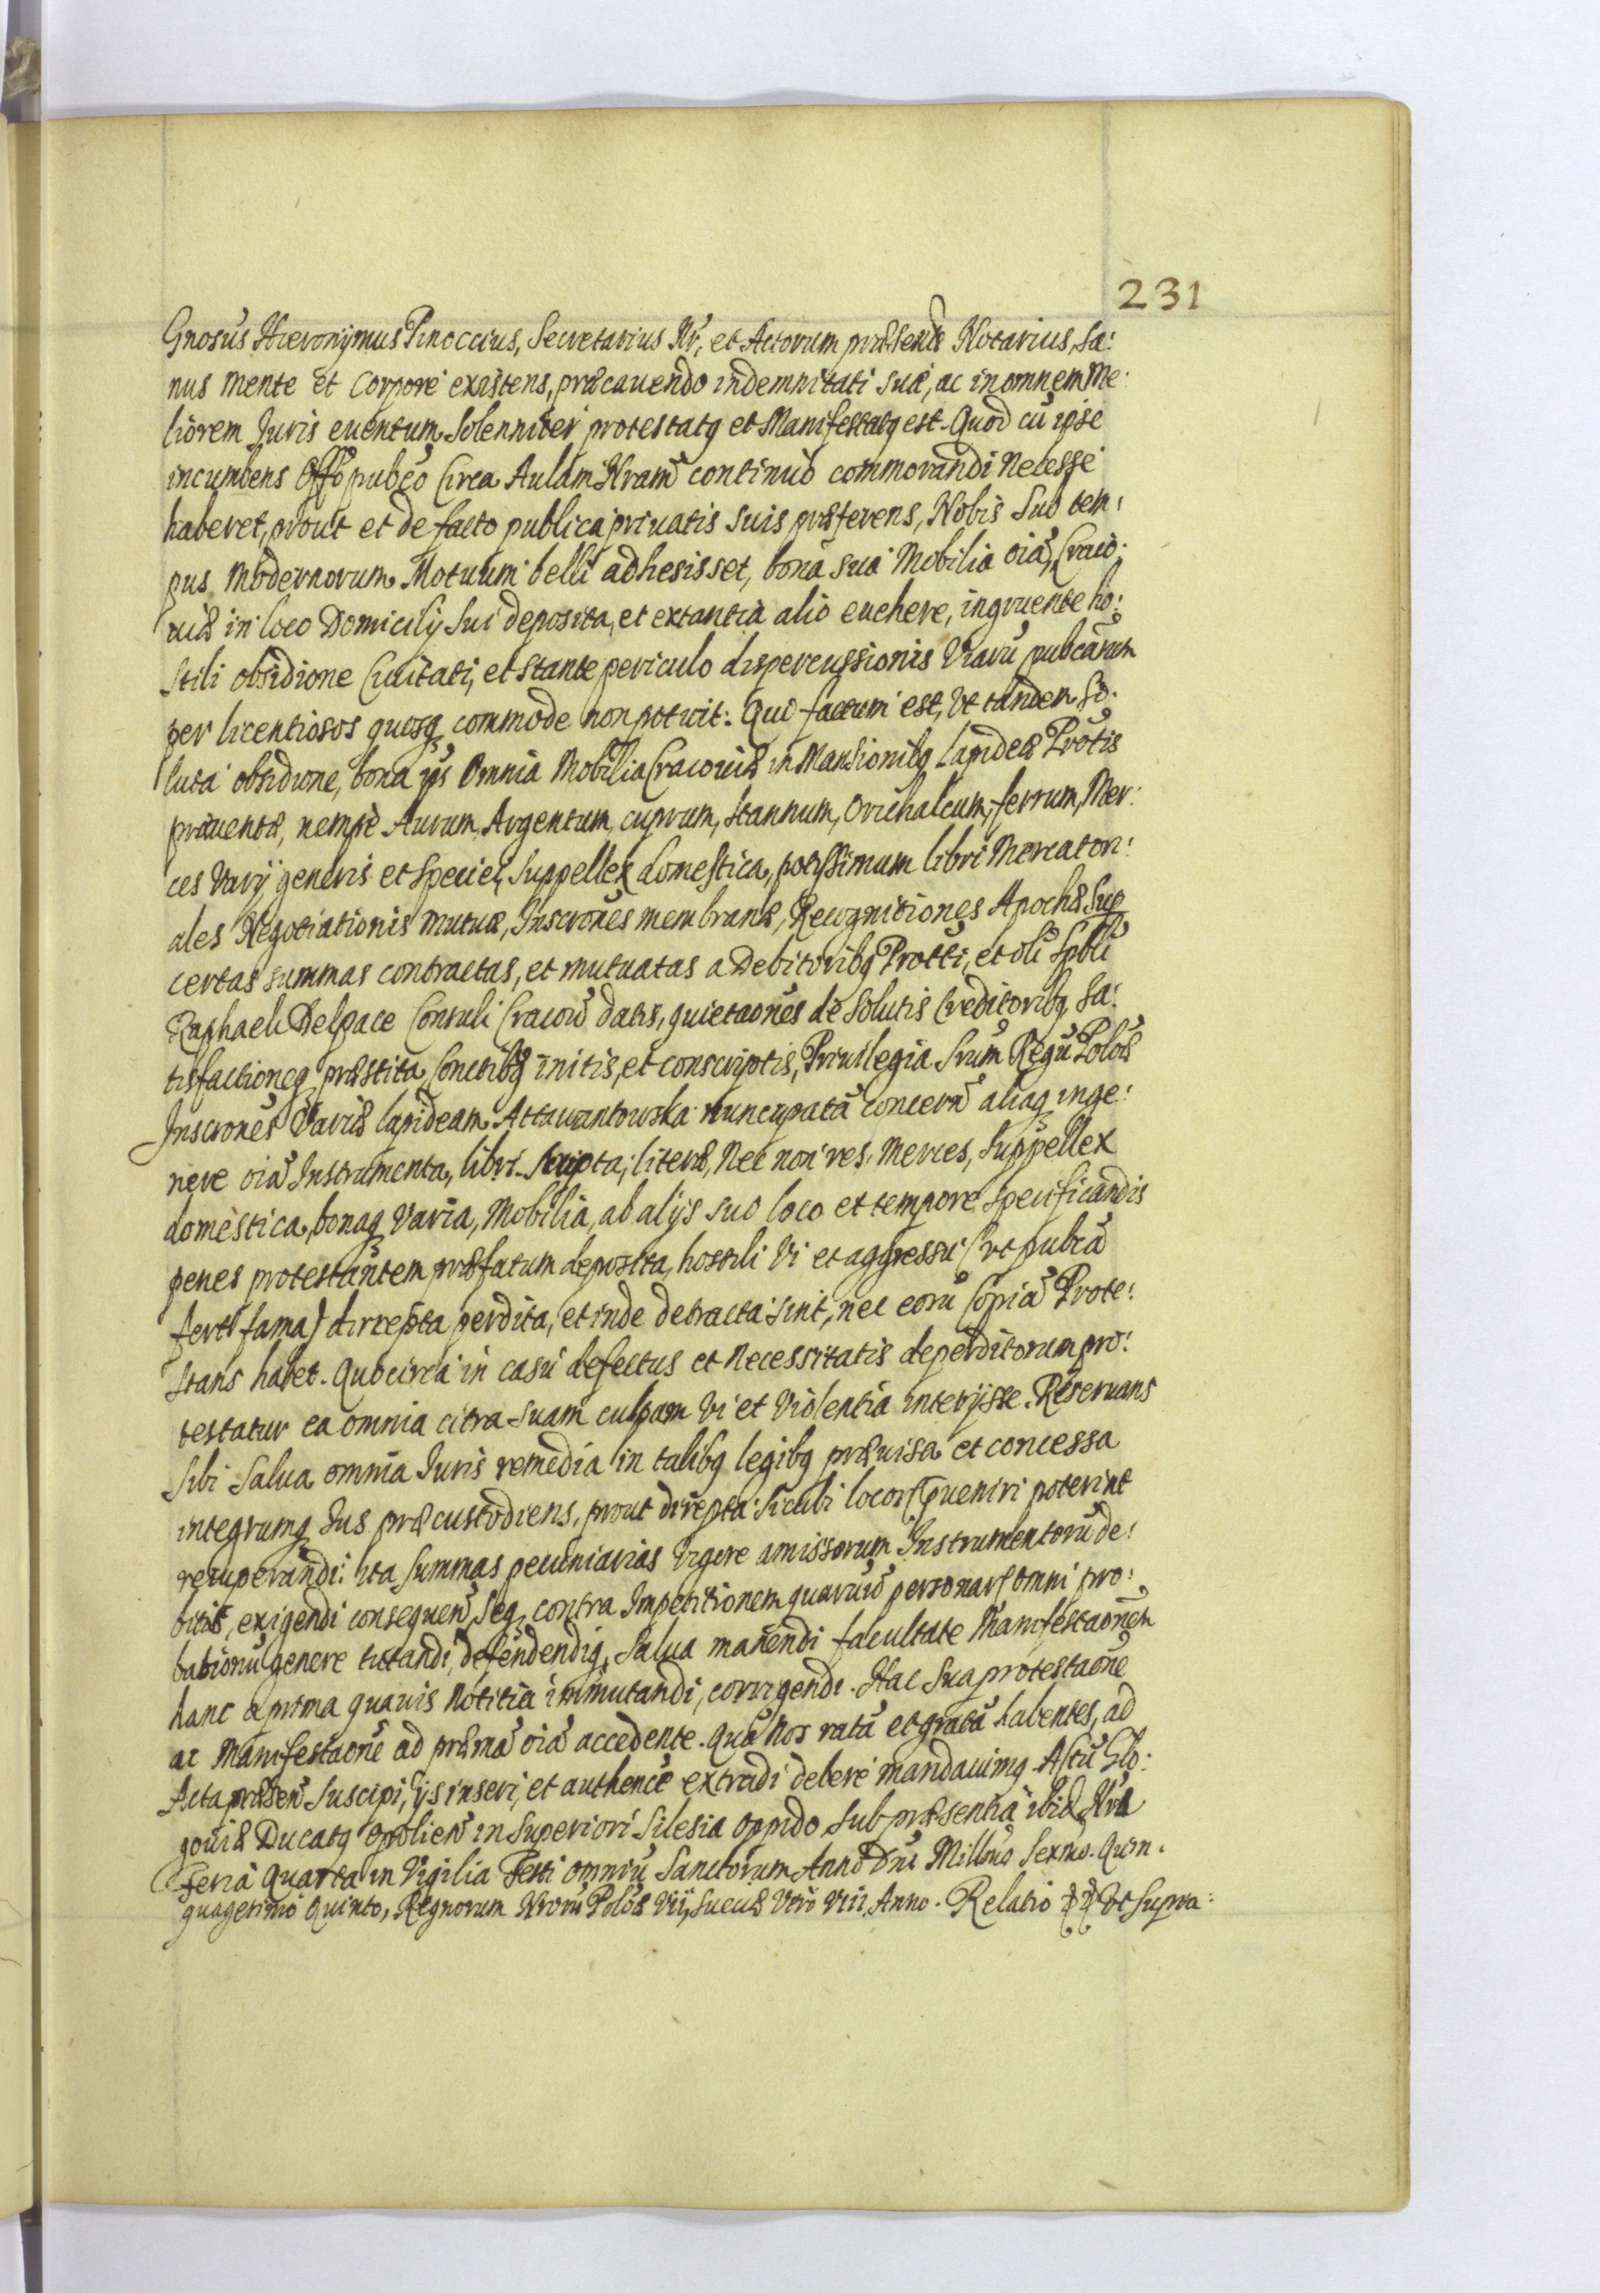 231
Gnosus Hieronymus Pinoccius, Secretarius Nr, et Actorum præsend Notarius, Sa:
nus mente et Corpore existens, præcavendo indemnitati suæ, ac in omnem Me:
liorem Iuris euentum Solenniter protestatq et Manifestatq est. Quod cū ipse
incumbens Offo pubco Circa Aulam Nram continuo commorandi Necesse
haberet, prout et de facto publica priuatis suis præferens, Nobis Suo tem:
pus modernorum Motuum belli adhesisset, bona sua Mobilia oia, Craco:
uiæ in loco Domicilij Sui deposita, et extantia alio euehere, ingruente ho:
stili obsidione Ciuitati, et stante periculo dispercussionis Viarū pubcarum
per licentiosos quosq commode non potuit. Quo factum est, Vt tandem So:
luta obsidione, bona ips Omnia Mobilia Cracouiæ in Mansionibq Lapideæ Protis
præuentæ, nempe Aurum, Argentum, cuprum, Stannum, Orichalcum, ferrum, Mer:
ces Varij generis et Speciei, Suppellex domestica, potissimum libri Mercatori:
ales Negotiationis mutuæ, Inscrones membranæ, Recognitiones Apochæ Sup
certas summas contractas, et mutuatas a Debitoribq Protti, et oli Spbli
Raphaeli Delpace Consuli Cracou datis, quietaones de Solutis Creditoribq, Sa:
tisfactioneq præstita Conctibq initis, et conscriptis, Priuilegia Srum Regū Poloæ
Inscrones Variæ lapideam Attauantowska nuncupatā concern aliaq inge:
nere oia Instrumenta, libri Scripta, literæ, Nec non res, Merces, Suppellex
domestica, bonaq Varia, Mobilia, ab alijs suo loco et tempore Specificandis
penes protestantem præfatum deposita, hostili Vi et aggressu (vt pubca
fert fama) direpta perdita, et inde detracta sint, nec eorū Copiā Prote:
stans habet. Quocirca in casu defectus et Necessitatis deperditorum pro:
testatur ea omnia citra suam culpam Vi et Violentia interijsse. Reseruans
Sibi Salua omnia Iuris remedia in talibq legibq præuisa et concessa
integrumq Ius præcustodiens, prout direpta sicubi locor queniri poterint
recuperandi: ita summas pecuniarias Vigore amissorum Instrumentorū de:
bitas, exigendi consequen Seq contra Impetitionem quaruis personar omni pro:
bationū genere tutandi, defendendiq, Salua manendi facultate Manifestaonem
hanc a prima quauis Notitia immutandi, corrigendi. Hac Sua protestaone
ac Manifestaone ad præma oia accedente. Quā Nos ratā et gratā habentes, ad
Acta præsen Suscipi, ijs inseri, et authence extradi debere mandauimq. Actū Glo:
gouiæ Ducatq Opolien in Superiori Silesia Oppido Sub præsentia ibid Nra
Feria Quarta in Vigilia Festi omniū Sanctorum Anno Dni Millmo Sexmo. Quin:
quagesimo Quinto, Regnorum Nrorū Poloæ Vii, Sueciæ Vero Viii Anno. Relatio Vt Supra: